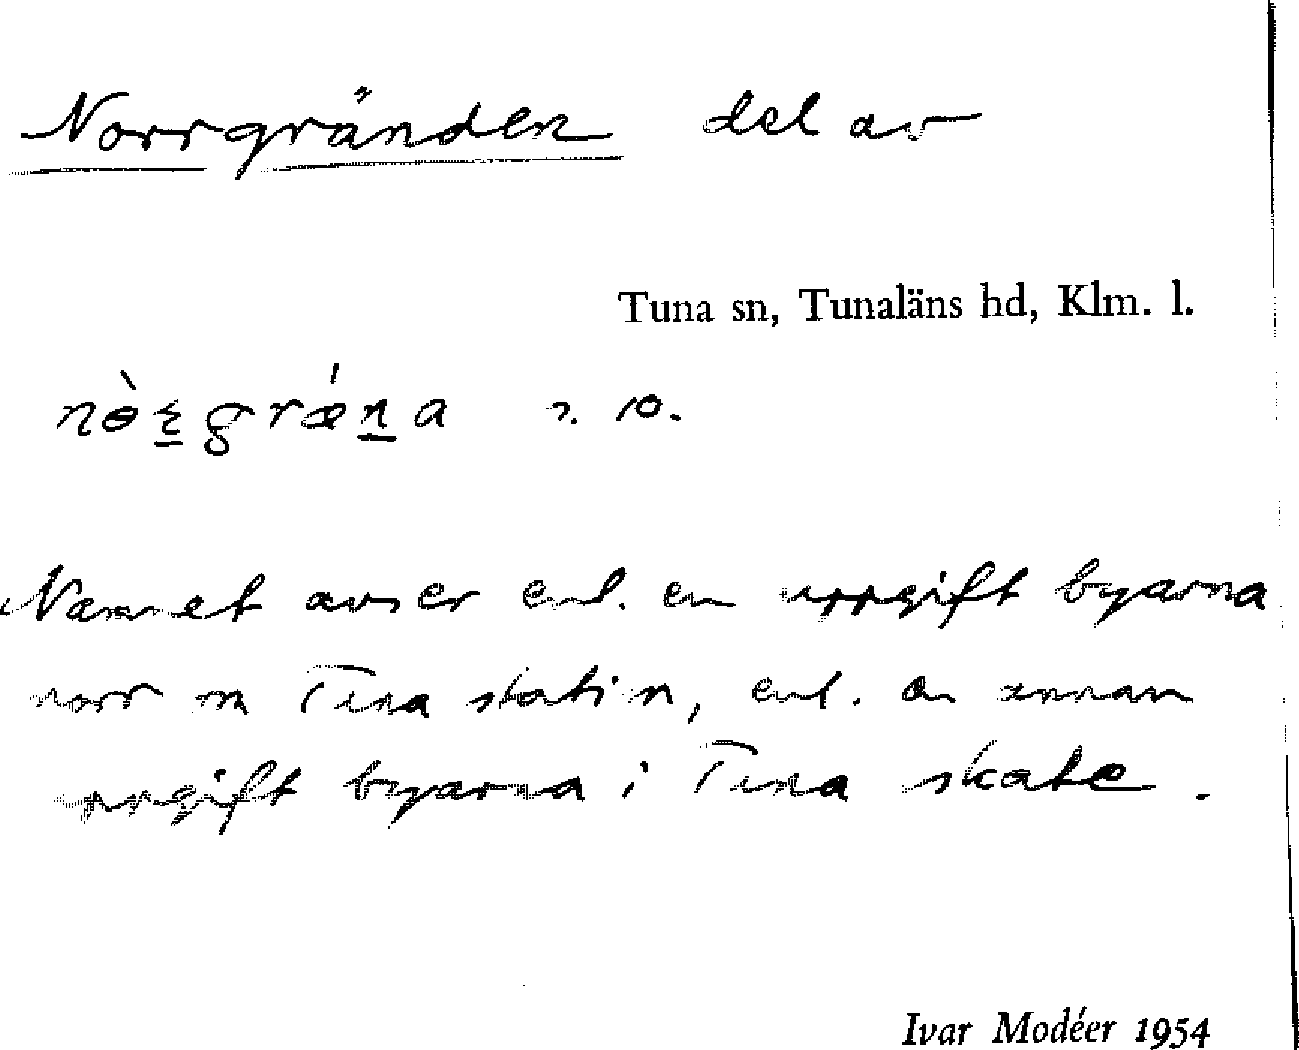 Norrgränden del av
Tuna sn, Tunaläns hd, Klm. l.
10.
Namnet avser enl. en uppgift byarna
norr om Tuna station, enl. en annan
uppgift byarna i Tuna skate.
Ivar Modéer 1954